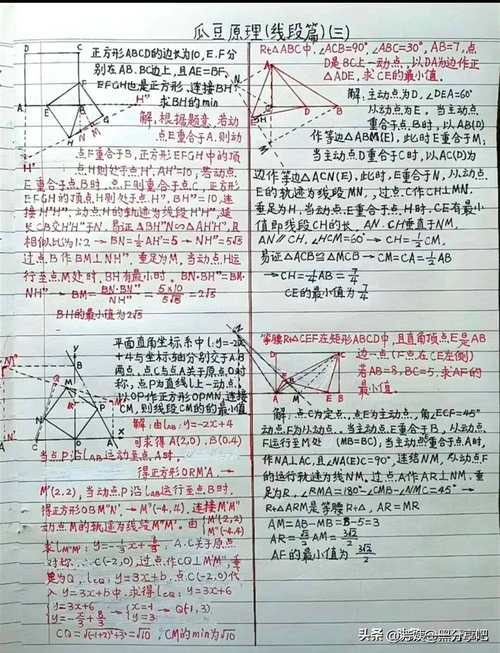 瓜豆原理(线段篇)(三)
正方形ABCD的边长为10,E.F分
别在AB、BC边上,且AE=BF,
EFGH也是正方形,连接BH
求BH的min
解,根据题意,若动
点E重合于A,则动
点F重合于B,正方形EFGH中的顶
点H则处于点H',AH'=10,若动点
E重合于点B时,点F则重合于点C,正方形
EFGH的顶点H则处于点H",BH"=10,连
接H'H",动点H的轨迹为线段H'H",延
长CB交H'H"于N,易证△BH"N∽△AH'H",且
相似比为1:2→BN=½AH'=5→NH"=5√5
过点B作BM⊥NH",垂足为M,当动点H运
行至点M处时,BH有最小时。BN·BH"=BM·
NH"→BM=BN·BH"/NH"=5×10/5√5=2√5
BH的最小值为2√5
Rt△ABC中,∠ACB=90°,∠ABC=30°,AB=7,点
D是BC上一动点,以DA为边作正
△ADE,求CE的最小值.
解,主动点为D,∠DEA=60°
从动点为E,当主动点
重合于点B时,以AB(D)
作等边△ABM(E),此时E重合于M;
当主动点D重合于C时,以AC(D)为
边作等边△ACN(E),此时,E重合于N,从动点
E的轨迹为线段MN,过点C作CH⊥MN,
垂足为H,当动点E重合于点H时,CE有最小
值即线段CH的长,AN、CH垂直于NM,
AN∥CH,∠HCM=60°→CH=½CM,
易证△ACB≌△MCB→CM=CA=½AB
→CH=¼AB=7/4
CE的最小值为7/4
平面直角坐标系中l:y=-2x
+4与坐标轴分别交于A.B
两点,点C与点A关于原点O对
称,点P为直线l上一动点,
以OP作正方形OPMN,连接
CM,则线段CM的的最小值
解:由l_AB:y=-2x+4
可求得A(2,0),B(0,4)
当点P沿l_AB运动至点A时,
得正方形ORM'A.→
M'(2,2),当动点P沿l_AB运行至点B时,
得正方形OBM"N',→M"(-4,4),连接M'M"
动点M的轨迹为线段M'M",由{M'(2,2) M"(-4,4)
求l_M'M":y=-⅓x+8/3 A.C关于原点
对称,∴C(-2,0),过点作CQ⊥M'M",垂
足为Q,l_CQ:y=3x+b,点C(-2,0)代
入y=3x+b中,求得l_CQ:y=3x+6
{y=3x+6 y=-x/3+8/3→{x=-1 y=3→Q(-1,3)
CQ=√(-1+2)²+3²=√10,CM的min为√10
等腰Rt△CEF在矩形ABCD中,且直角顶点E是AB
边一点(F点在CE左侧)
若AB=8,BC=5,求AF的
最小值.
解:点C为定点,点E为主动点,角∠ECF=45°
动点F为从动点,当主动点E重合于B,从动点
F运行至M处(MB=BC),当主动点重合于点A时,
作NA⊥AC,且∠NA(E)C=90°,连结NM,从动点F
的运行轨迹为线NM,过点A作AR⊥NM,垂
足为R,∠RMA=180°-∠CMB-∠NMC=45°→
Rt△ARM是等腰Rt△,AR=MR
AM=AB-MB=8-5=3
AR=√2/2 AM=3√2/2
AF的最小值为3√2/2